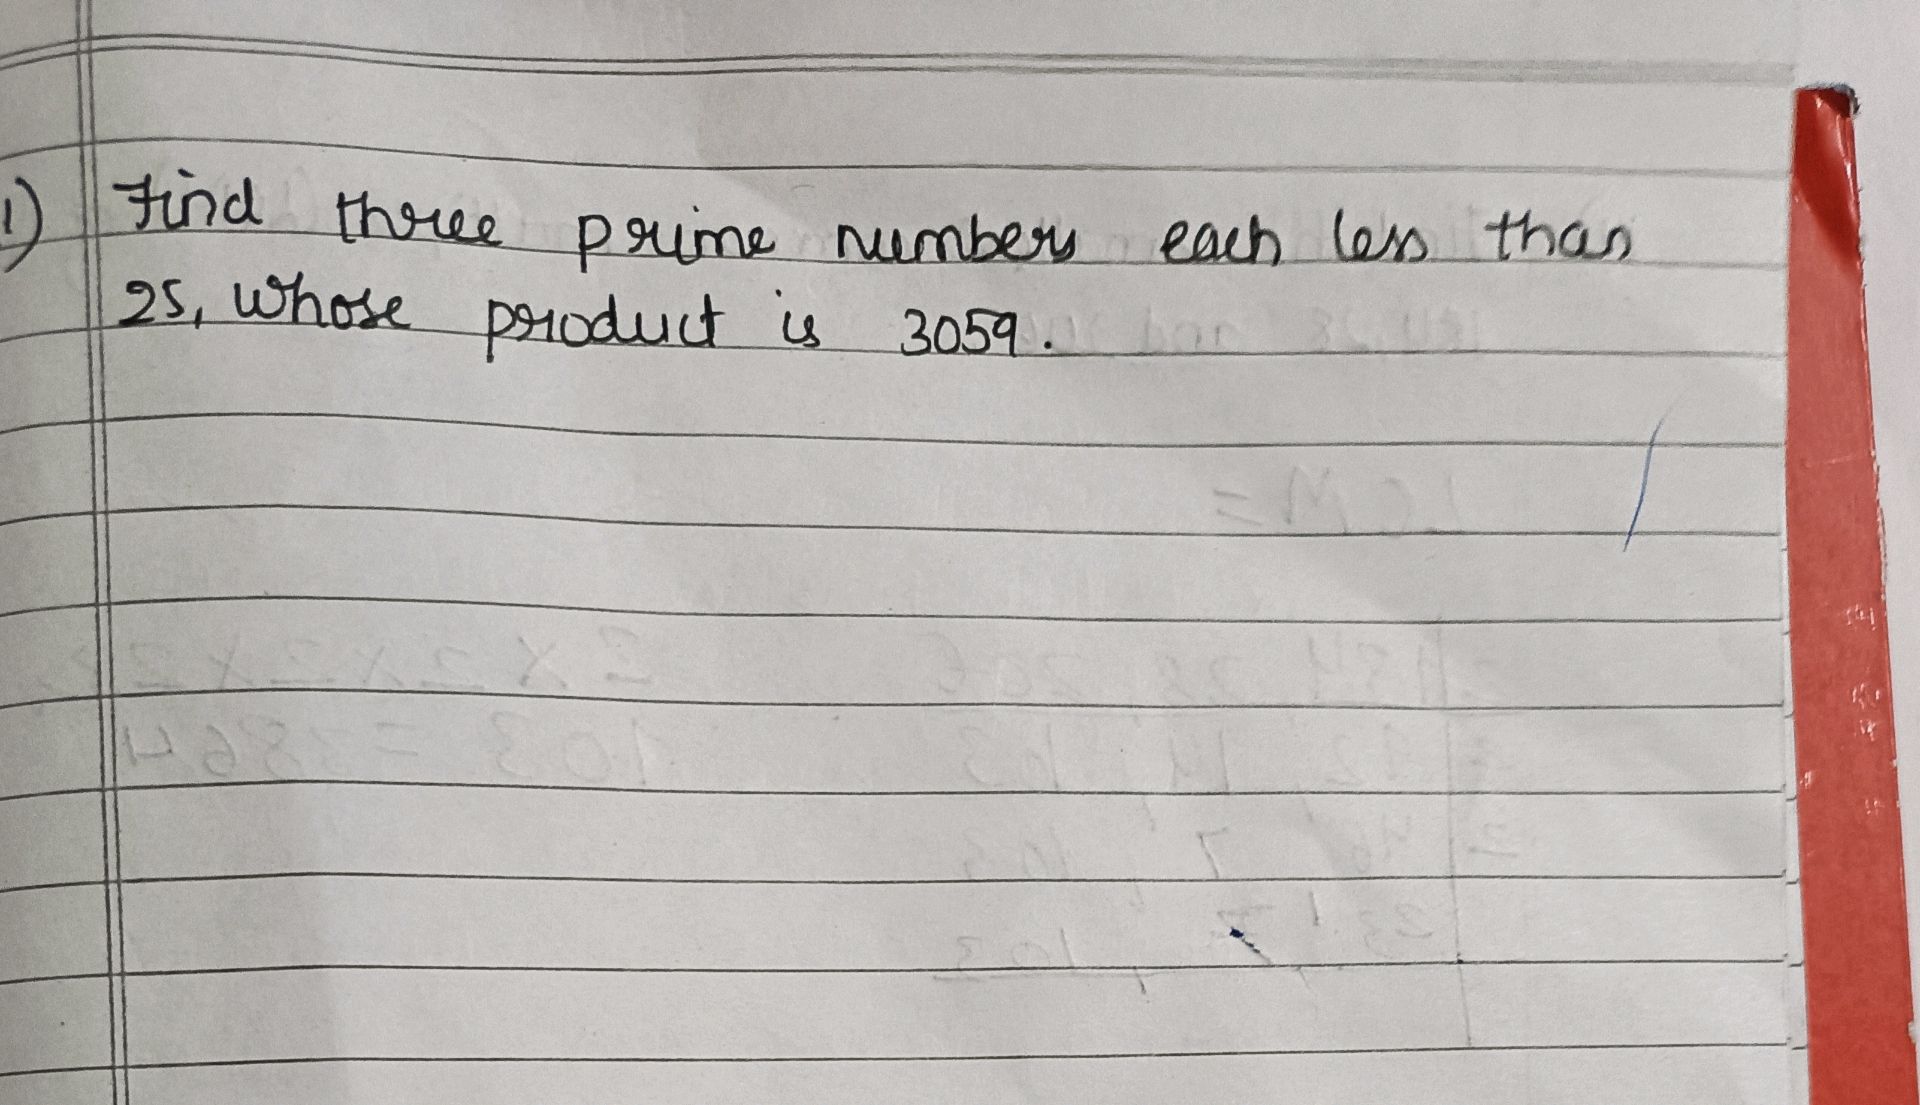 1) Find three prime numbers each less than
25, whose product is 3059.